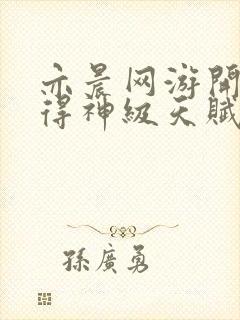 亦晨网游開
得神級天賦
孫廣勇